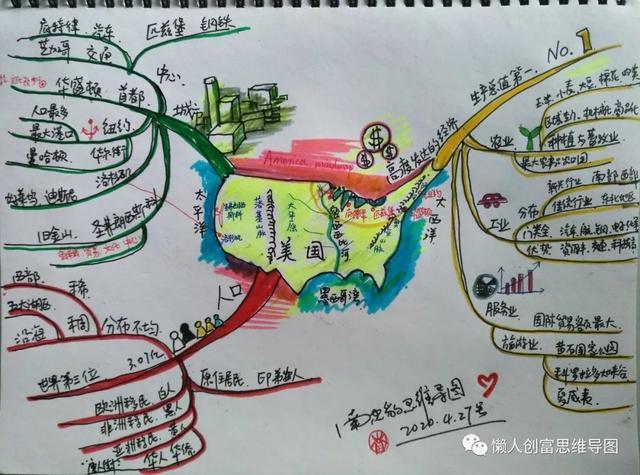 底特律 汽车
匹兹堡 钢铁
芝加哥 交通
中心
华盛顿 首都
城市
人口最多
最大港口
纽约
曼哈顿 华尔街
洛杉矶
好莱坞 迪斯尼
旧金山 圣弗朗西斯科
America roadmap
太平洋
落基山脉
大平原
密西西比河
美国
五大湖
大西洋
墨西哥湾
高度发达的经济
生产总值第一
No.1
玉米 小麦 大豆 棉花
农业
种植与畜牧业
最大农产品出口国
工业
分布
新兴行业 南部 西部
传统行业 东北地区
服务业
国际贸易额最大
旅游业
黄石国家公园
科罗拉多大峡谷
人口
3.07亿
世界第三位
分布不均
西部
平原
五大湖区
沿海
原住民 印第安人
欧洲移民 白人
非洲移民 黑人
亚洲移民 黄人
"唐人街" 华人 华侨
思维导图
2020.4.27
懒人创富思维导图